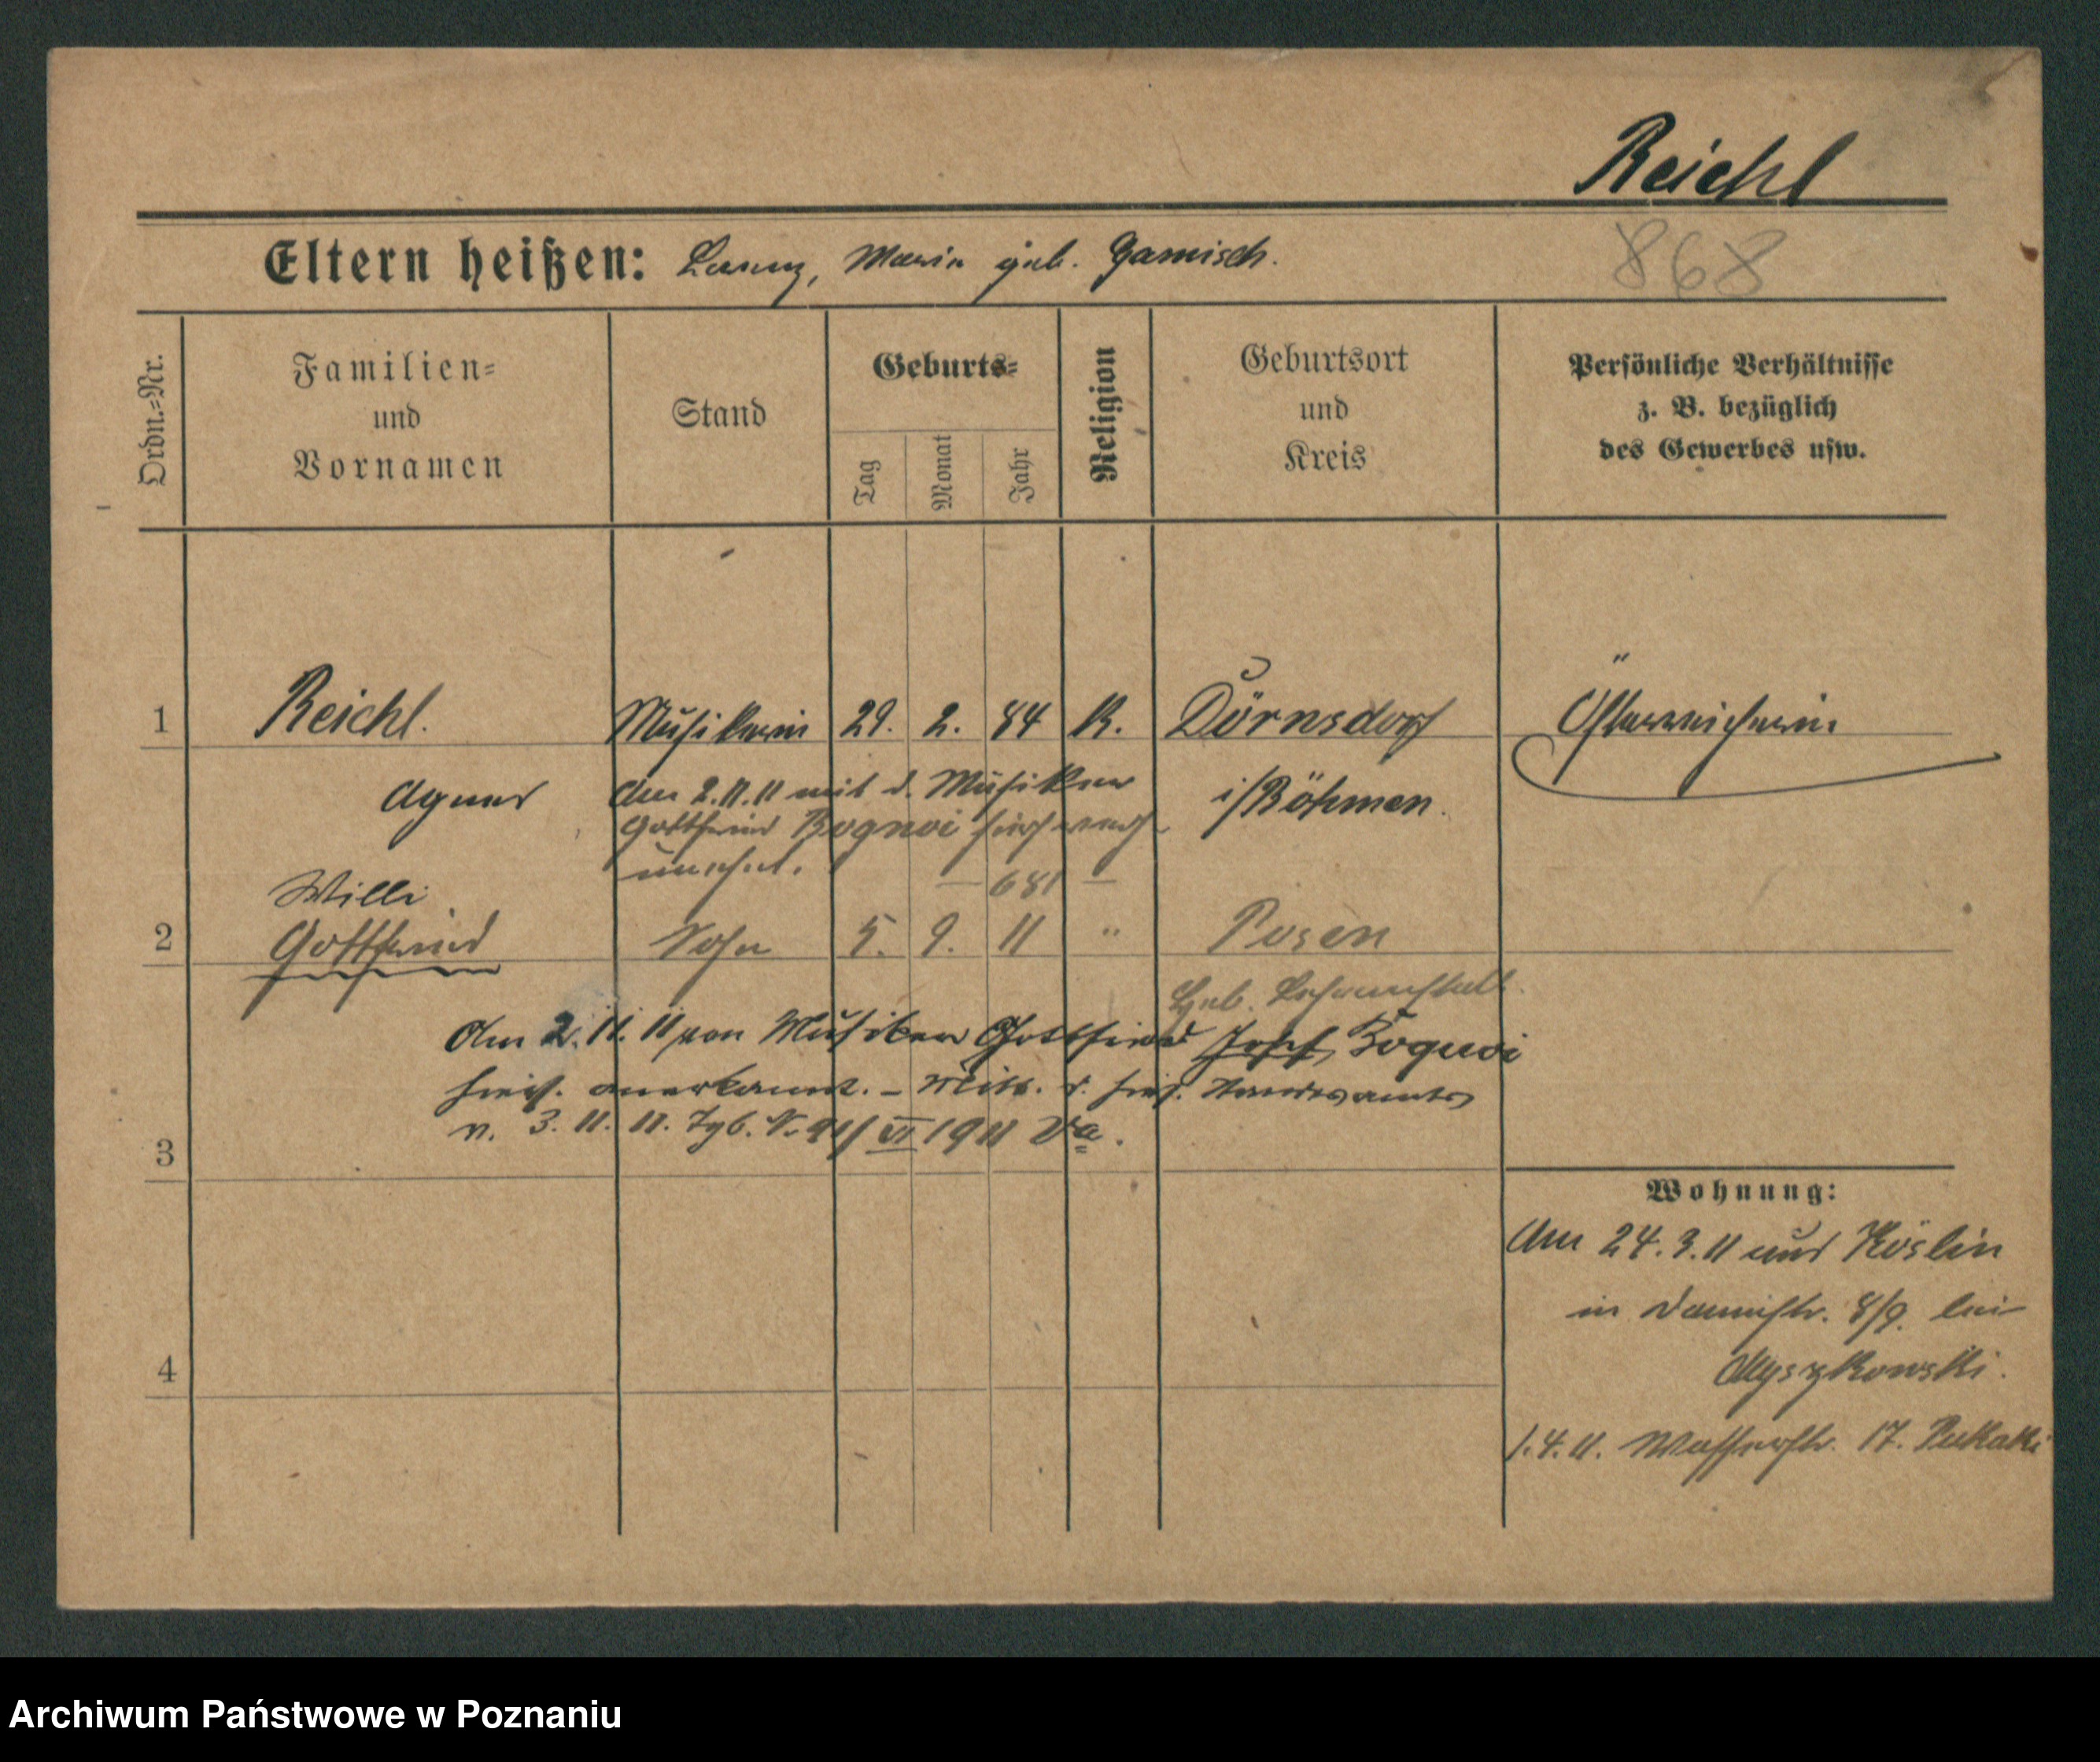 Reichl
Eltern heißen: Lorenz, Maria geb. Gamisch.
868
Ordn.=Nr.
Familien=
und
Vornamen
Stand
Geburts=
Tag
Monat
Jahr
Religion
Geburtsort
und
Kreis
Persönliche Verhältnisse
z. B. bezüglich
des Gewerbes usw.
1 Reichl. Musikerin 29. 2. 84 K. Dörnsdorf Österreicherin.
Agnes
i/Böhmen.
Am 2.11.11 mit d. Musiker
Gottfried Bognoi hier
681
Willi
2 Gottfried Sohn 5. 9. 11 " Posen
Heb. Lehranstalt.
Am 2. 11. 11 von Musiker Gottfried Josef Bognoi
hies. anerkannt. – Mitt. d. hies. Standesamts
v. 3. 11. 11. Tgb. N. 911/VI 1911 Va.
3
4
Wohnung:
Am 24.3.11 aus Köslin
in Dammstr. 8/9. bei
Myszkowski.
1.4.11. Wasserstr. 17. Pukacki
Archiwum Państwowe w Poznaniu